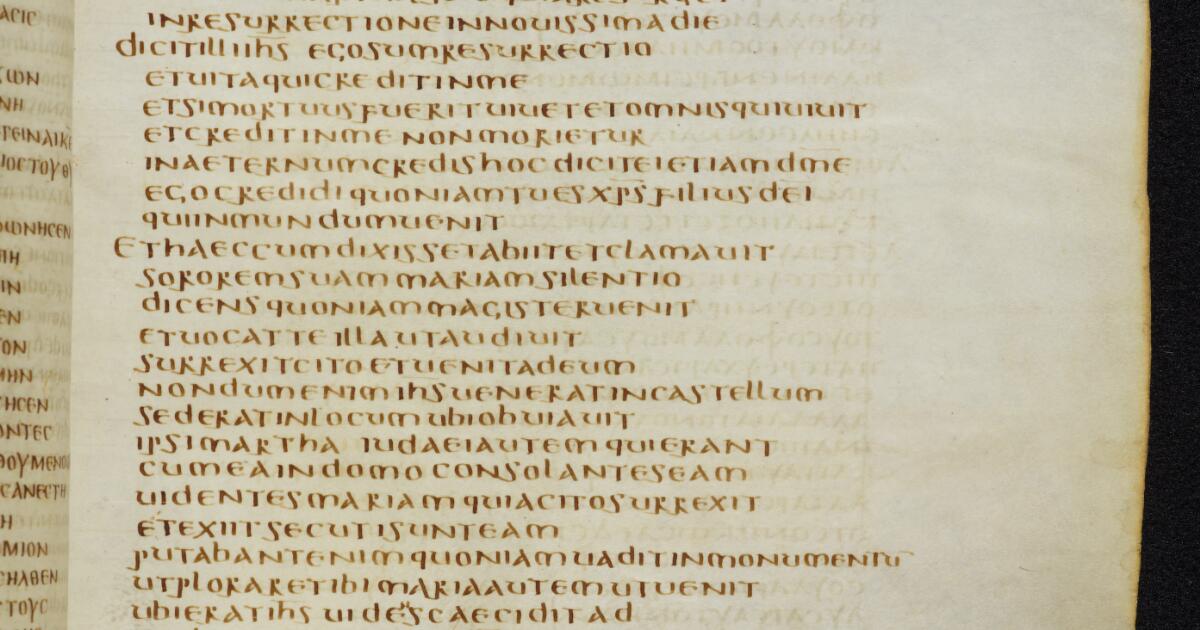 INRESURRECTIONEINNOUISSIMADIE
DICITILLIIHS EGOSUMRESURRECTIO
ETUITAQUICREDITINME
ETSIMORTUUSFUERITUIUETETOMNISQUIUIUIT
ETCREDITINME NONMORIETUR
INAETERNUMCREDISHOC DICITEIETIAMDME
EGOCREDIDIQUONIAMTUESXPSFILIUSDEI
QUIINMUNDUMUENIT
ETHAECCUMDIXISSETABIITETCLAMAUIT
SOROREMSUAMMARIAMSILENTIO
DICENSQUONIAMMAGISTERUENIT
ETUOCATTEILLAUTAUDIUIT
SURREXITCITOETUENITADEUM
NONDUMENIMIHSUENERATINCASTELLUM
SEDERATINLOCUMUBIOBUIAUIT
IPSIMARTHA IUDAEIAUTEMQUIERANT
CUMEAINDOMOCONSOLANTESEAM
UIDENTESMARIAMQUIACITOSURREXIT
ETEXIITSECUTISUNTEAM
PUTABANTENIMQUONIAMUADITINMONUMENTŪ
UTPLORARETIBIMARIAAUTEMUTUENIT
UBIERATIHS UIDESCAECIDITAD
ΖΩΝ
ΝΗ
ΩΩΝΗCΕΝ
ΠΗ
ΙΝ
ΕΝ
ΤΟΝ
ΜΗΝ
ΗCΕΝ
ΟΝΤΕC
ΘΟΥΜΕΝΟΙ
CΑΝΕCΤΗ
Η
ΜΙΟΝ
CΗΛΘΕΝ
ΤΟΥC